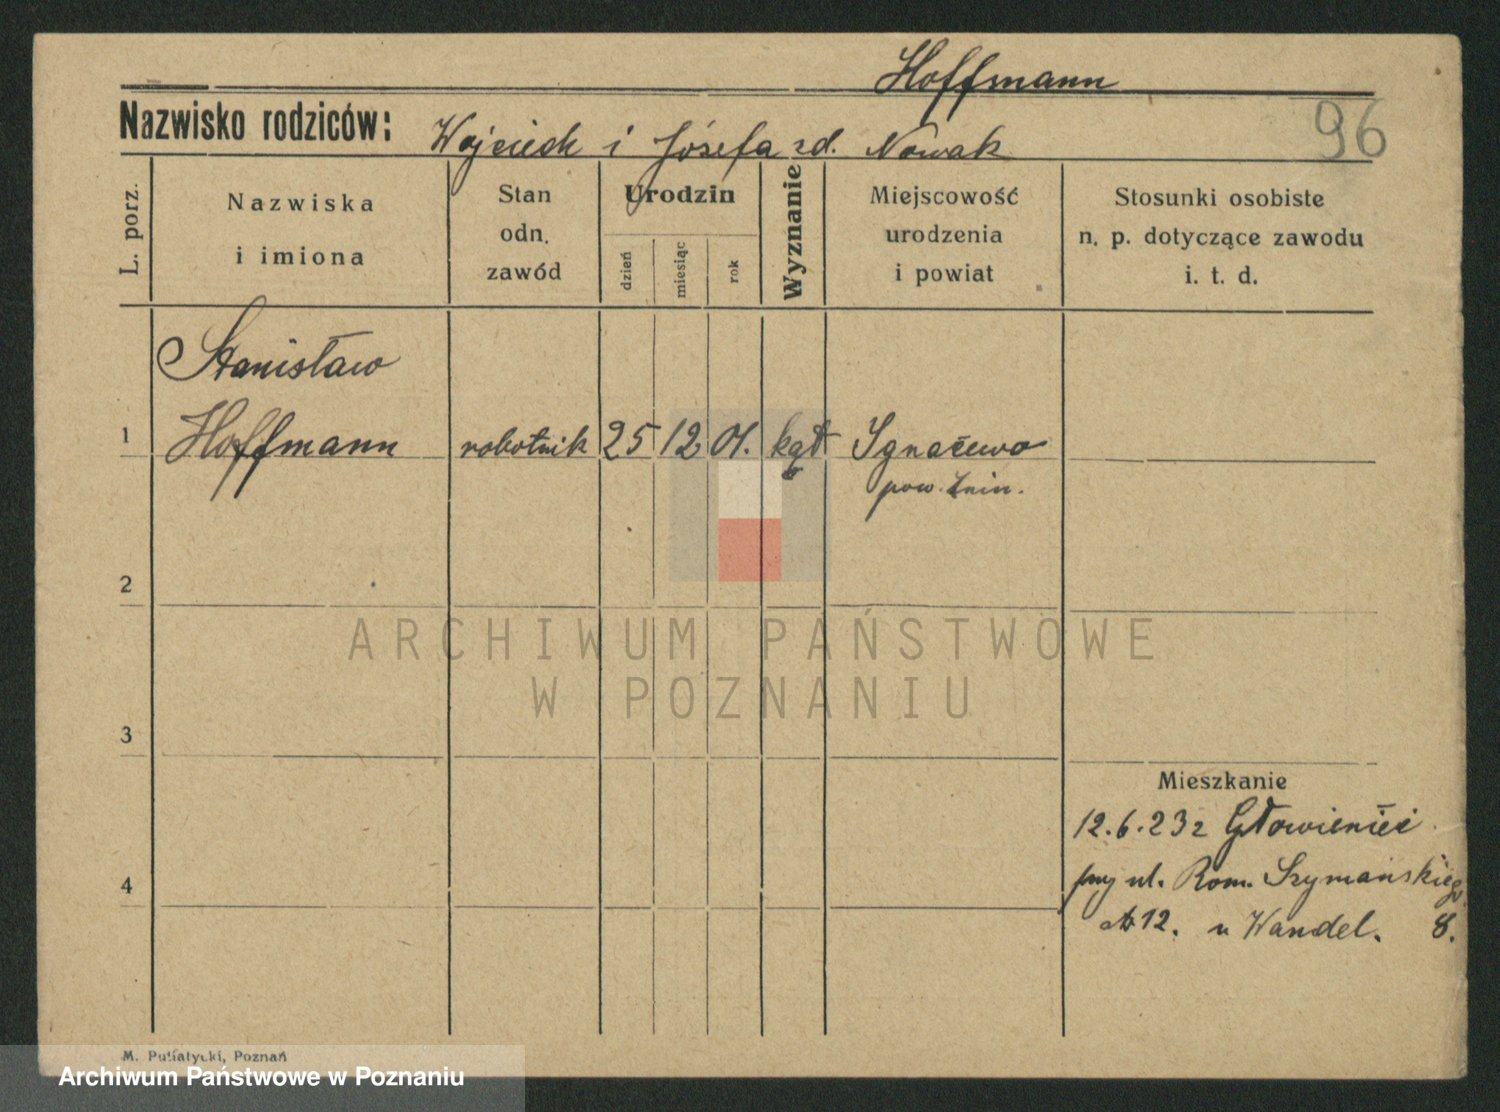 Hoffmann
96
Nazwisko rodziców: Wojciech i Józefa zd. Nowak
L. porz.
Nazwiska
i imiona
Stan
odn.
zawód
Urodzin
dzień
miesiąc
rok
Wyznanie
Miejscowość
urodzenia
i powiat
Stosunki osobiste
n. p. dotyczące zawodu
i. t. d.
Stanisław
1 Hoffmann robotnik 25 12 01. kat Ignacewo
pow. Żnin.
2
ARCHIWUM PAŃSTWOWE
W POZNANIU
3
Mieszkanie
12.6.23 z
przy ul. Rom. Szymańskiego
4
№ 12. u Wandel. 8.
M. Putiatycki, Poznań
Archiwum Państwowe w Poznaniu